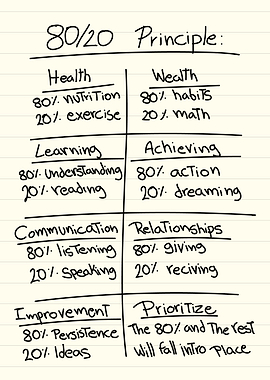 80/20 Principle:
Health
80% nutrition
20% exercise
Wealth
80% habits
20% math
Learning
80% understanding
20% reading
Achieving
80% action
20% dreaming
Communication
80% listening
20% speaking
Relationships
80% giving
20% reciving
Improvement
80% Persistence
20% Ideas
Prioritize
The 80% and The rest
Will fall intro place